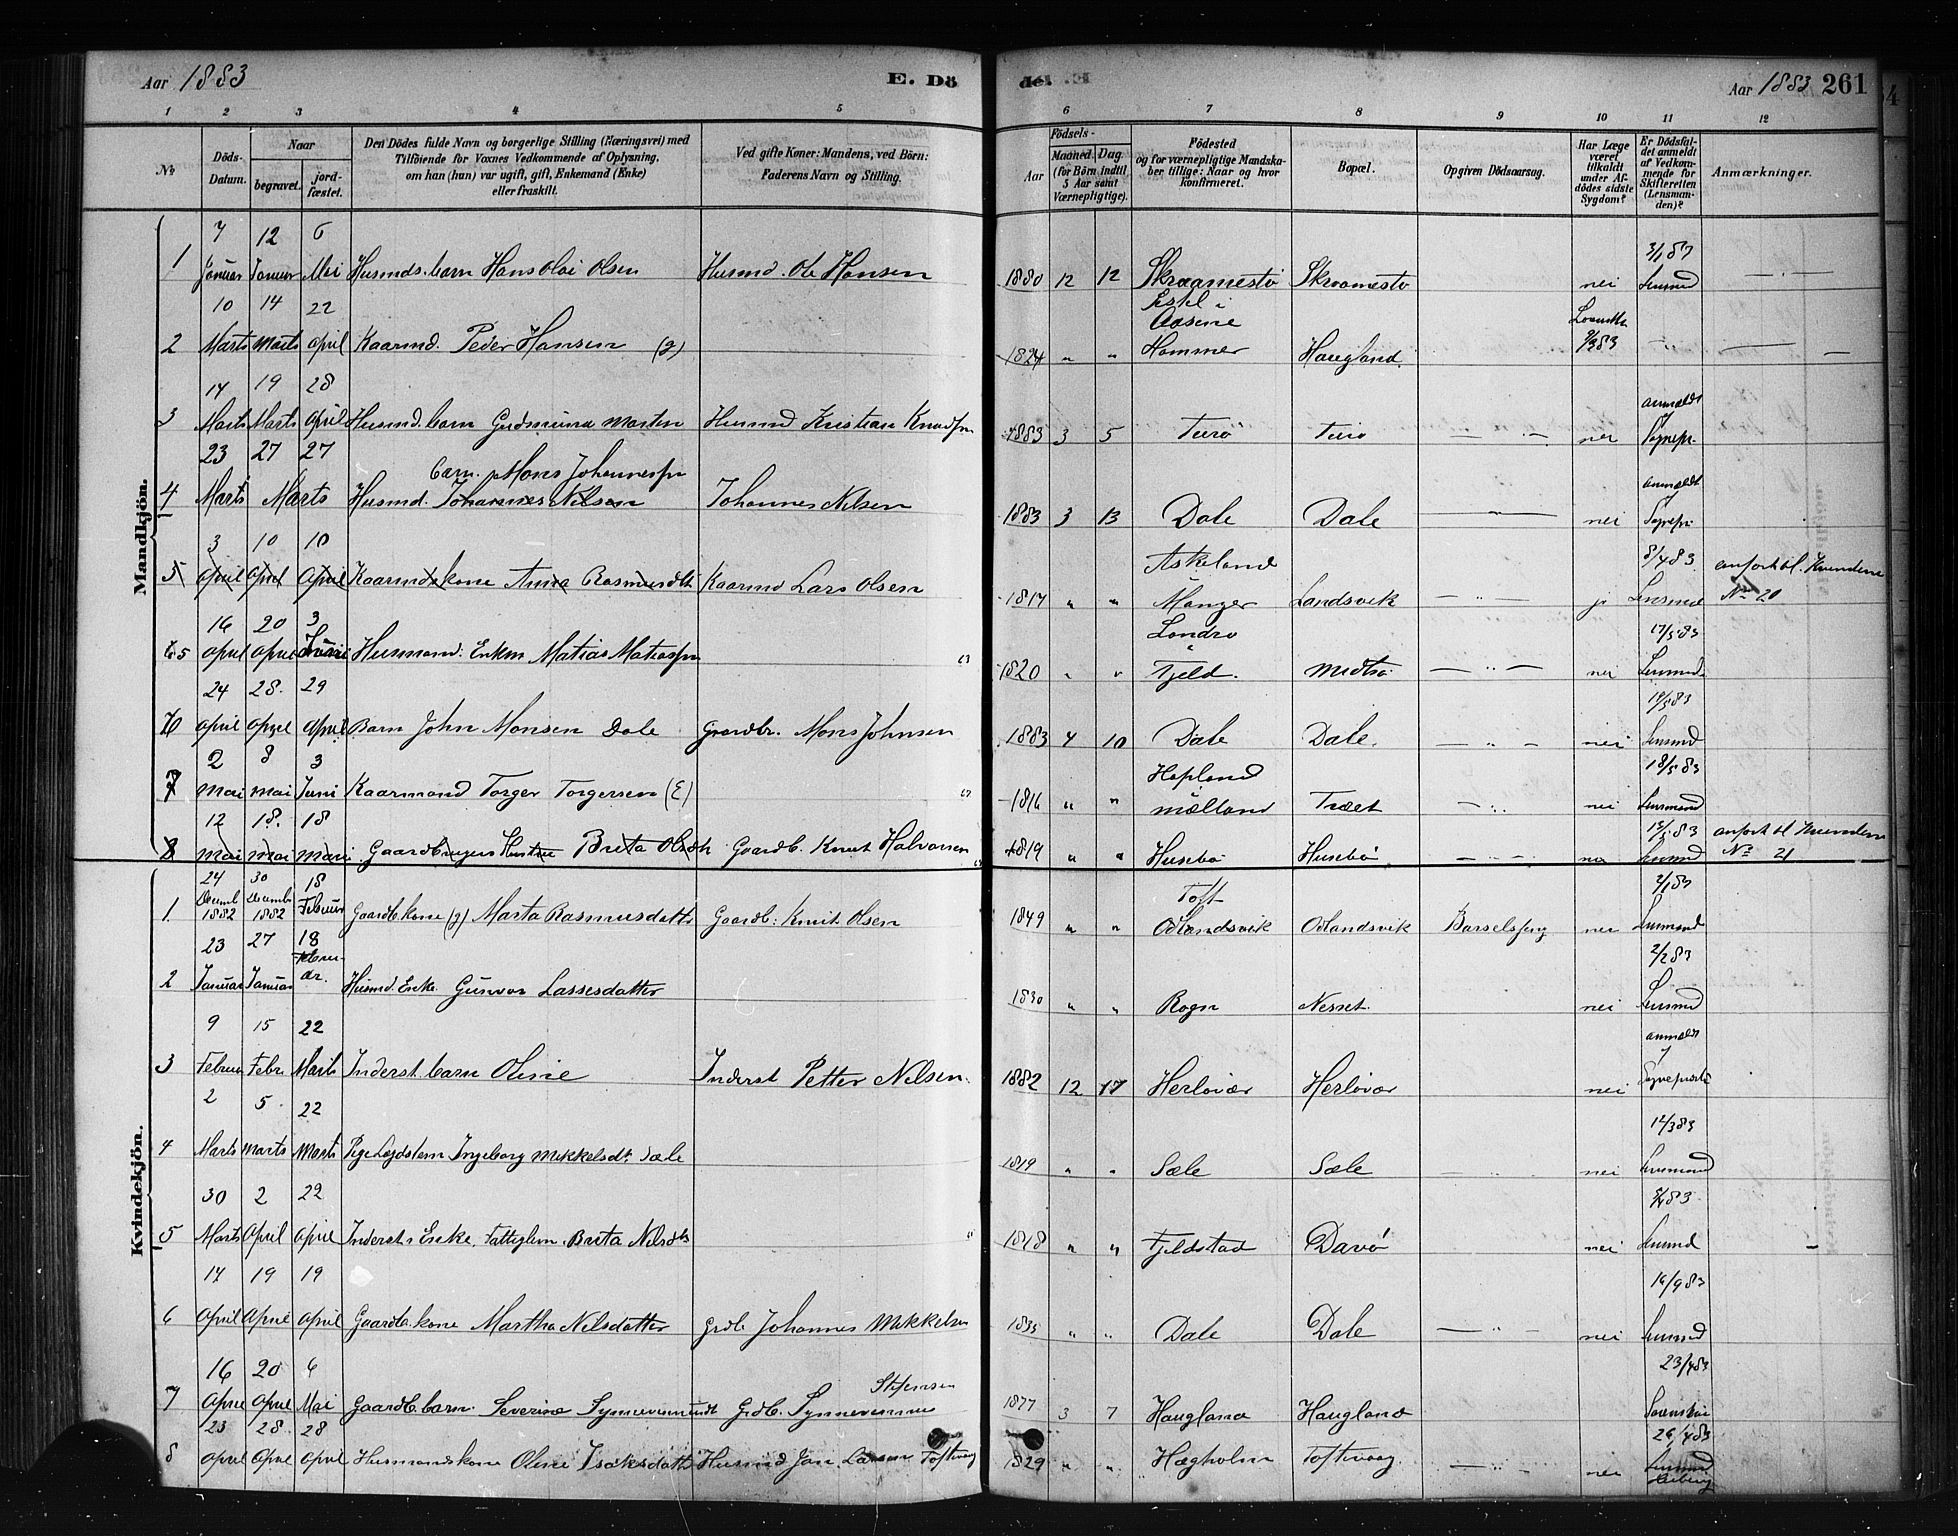 Aar 1883 E. Dö
del. Aar 1883 261
1 2 3 4 5
6 7 8 9 10 11 12
No Döds-Datum. Naar begravet. jordfæstet. Den Dödes fulde Navn og borgerlige Stilling (Næringsvei) med Tilföiende for Voxnes Vedkommende af Oplysning, om han (hun) var ugift, gift, Enkemand (Enke) eller fraskilt. Ved gifte Koner: Mandens, ved Börn: Faderens Navn og Stilling.
Födsels- Aar Maaned. Dag. (for Börn indtil 5 Aar samt Værnepligtige). Födested og for værnepligtige Mandskaber tillige: Naar og hvor konfirmeret. Bopæl. Opgiven Dödsaarsag. Har Læge været tilkaldt under Afdödes sidste Sygdom? Er Dödsfaldet anmeldt af Vedkommende for Skifteretten (Lensmanden)? Anmærkninger.
Mandkjön.
1 7 Januar 12 Januar 6 Mai Husmds. barn Hans Olai Olsen Husmd. Ole Hansen 1880 12 12 Skraamestö Skraamestö nei Lensmd
2 10 Marts 14 Marts 22 April Kaarmd. Peder Hansen (g) 1824 " " Hammer Haugland.
3 14 Marts 19 Marts 28 April Husmd. barn Gudmund Marten Husmd Kristian 1883 3 5 Turö Turö nei anmeldt Sognepr.
4 23 Marts 27 27 Marts Husmd. barn. Mons Johannessn Johannes Nilsen Johannes Nilsen 1883 3 13 Dale Dale nei anmeldt Sognepr.
5 3 April 10 April 10 April Kaarmdskone Anna Rasmusdtr Kaarmd Lars Olsen 1817 " " Askeland Manger Landsvik ja 8/4 83. Lensmd anfört bl. Kvinderne No 20
5 16 April 20 April 3 Juni Husmand. Enkm Matias Matiassn 1820 " " Fjeld. Midtsö nei 17/5 83 Lensmd.
6 24 April 28. April 29 April Barn John Monsen Dale Gaardbr. Mons Johnsen 1883 4 10 Dale Dale. nei Lensmd
7 2 Mai 8 Mai 3 Juni Kaarmand Torger Torgersen (E) 1816 " " Hopland Mælland Træet nei 18/5 83 Lensmand
8 12 Mai 18. Mai 18 Mai Gaardbrugers Hustru Brita Olsdtr Gaardb. Knut Halvorsen 1819 " " Husebö Husebö nei Lensmd anfört bl Kvinderne No 21
Kvindekjön.
1 24 Decemb 1882 30 Decemb 1882 18 Februar Gaardb. kone (g) Marta Rasmusdatter Gaardb: Knut Olsen 1849 " " Toft Odlandsvik Barselsfeng nei Lensmand
2 23 Januar 27 Januar 18 Februar. Husmd. Enke. Gunvor Lassesdatter 1830 " " Rogn Nesset. nei 2/2 83 Lensmd
3 9 Februar 15 Febr. 22 Marts Inderst. barn Oline Inderst Petter Nilsen. 1882 12 17 Herlövær Herlövær nei anmeldt
4 2 Marts 5. Marts 22 Marts Pige Lægdslem Ingeborg Mikkelsdt. Sæle 1819 " " Sæle Sæle nei 12/3 83 Lensmand
5 30 Marts 2 April 22 April Inderst. Enke, Fattiglem. Brita Nilsdtr 1818 " " Fjeldstad Davö nei Lensmd
6 14 April 19 April 19 April Gaardb. kone Martha Nilsdatter Grdb. Johannes Mikkelsen 1835 " " Dale Dale nei Lensmd
7 16 April 20 April 6 Mai Gaardb. barn. Severine 1877 3 7 Haugland Haugland 23/4 83
8 23 April 28. April 28 April Husmandskone Oline Isaksdatter Husmd Jan Larsen Toftevaag 1829 " " Hægholm Toftevaag nei 26/4 83 Lensmd